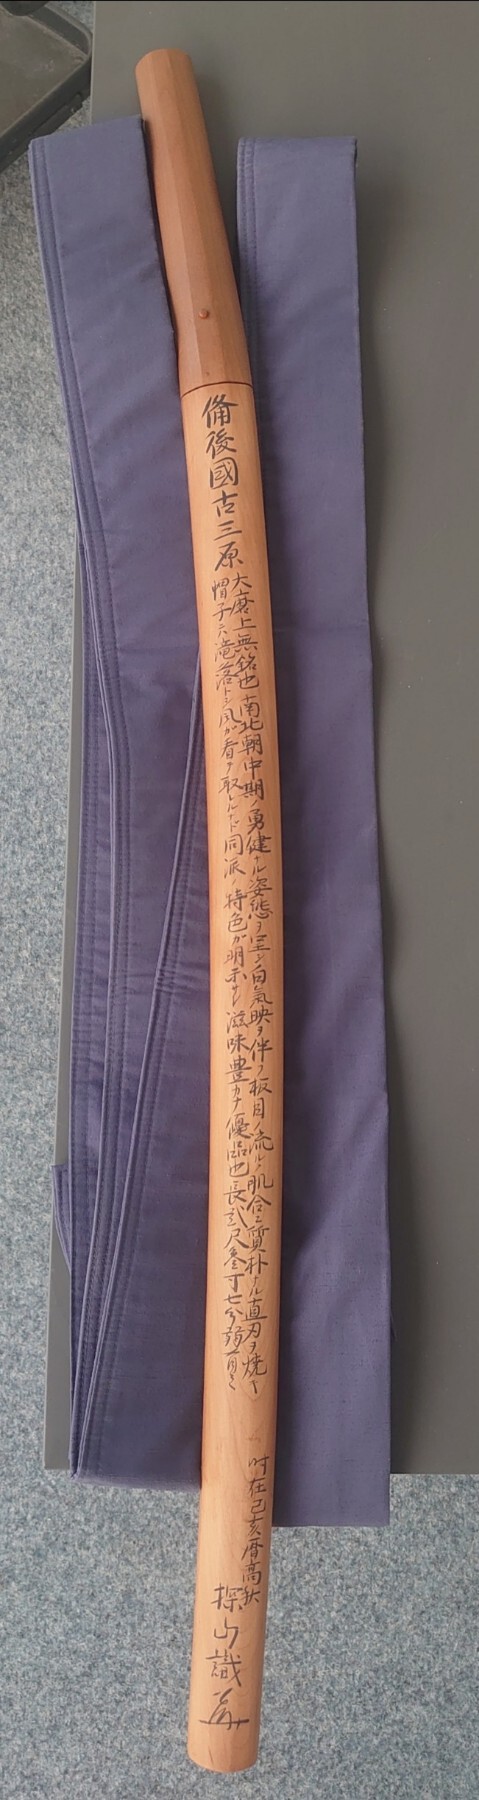 備後國古三原
大磨上無銘也南北朝中期ノ勇健ナル姿態ヲ呈シ白氣映ヲ伴フ板目ノ流ルル肌合ニ質朴ナル直刃ヲ焼キ
帽子ニ滝落トシ風が看テ取レルナド同派ノ特色が明示サレ滋味豊カナ優品也長弐尺参寸七分弱有之
时在己亥暦高秋
探山識